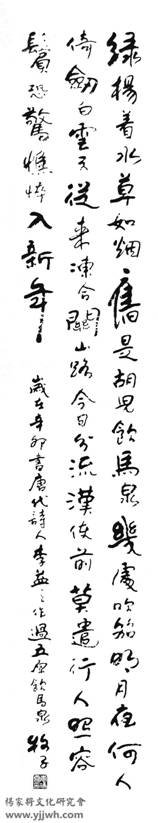 綠楊着水草如烟舊是胡兒飲馬泉幾處吹笳明月夜何人
倚劍白雲天從來凍合關山路今日分流漢使前莫遣行人照容
鬢恐驚憔悴入新年
歲在辛卯書唐代詩人李益之作過五原飲馬泉 牧子
楊家將文化研究會
www.yjjwh.com